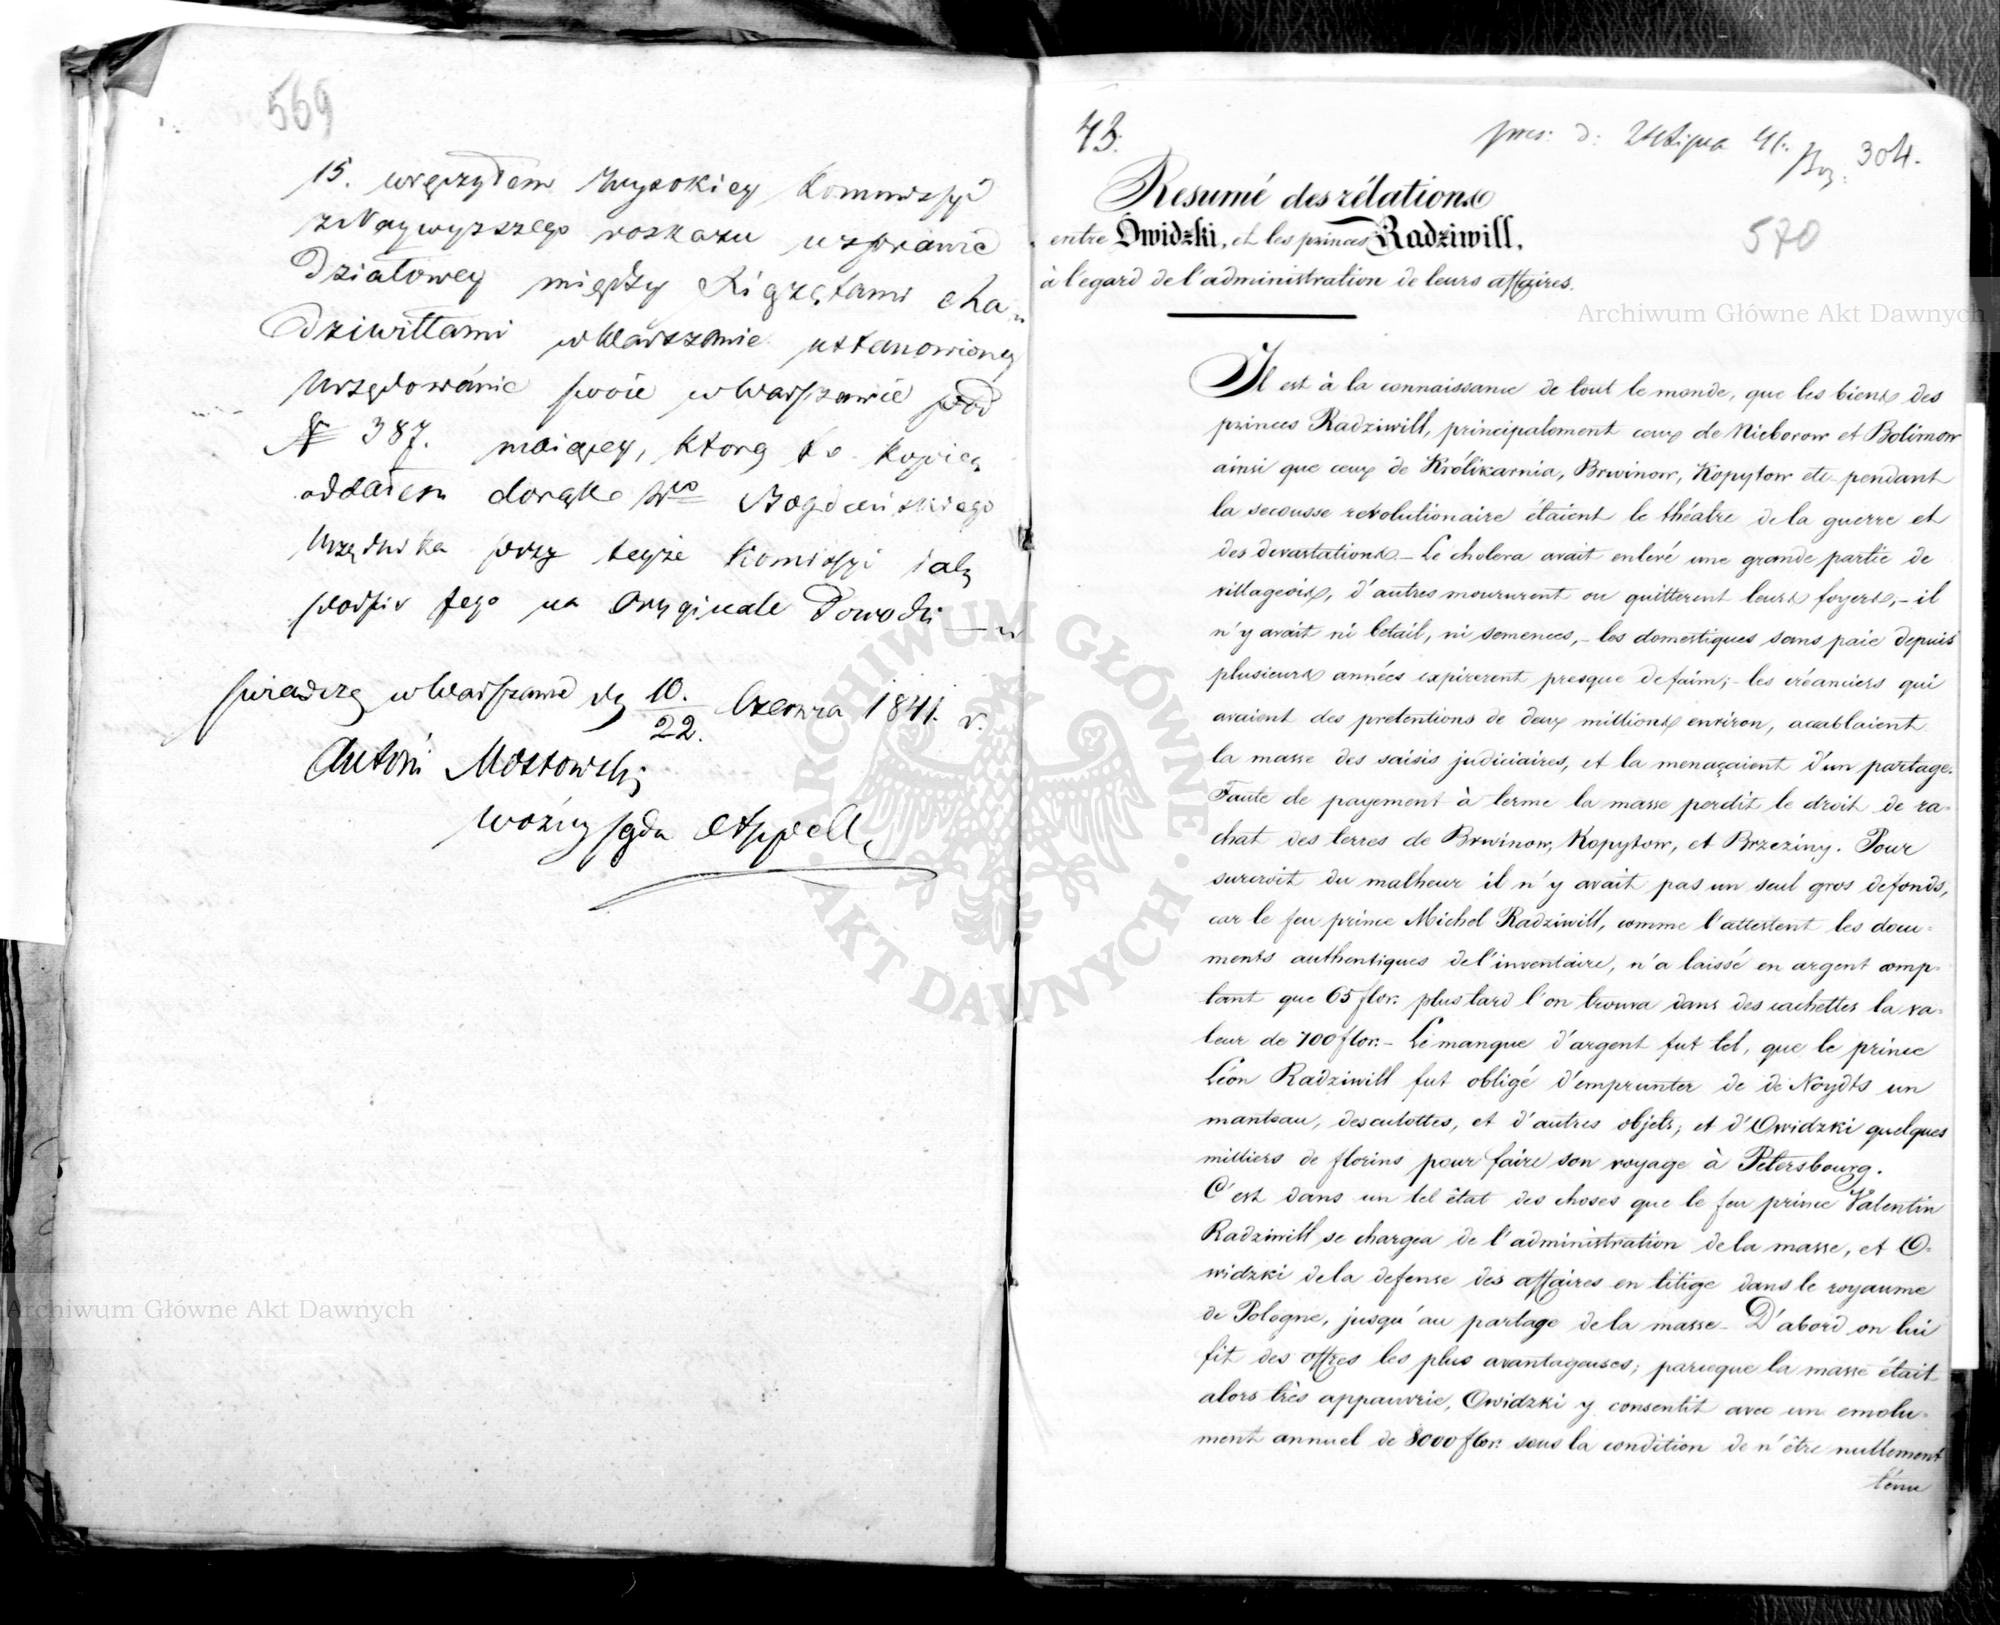 569
15. wręczyłem Wysokiey Kommissyi
z Naywyższego roskazu w sprawie
Działowey między Xiążętami Ra-
dziwiłłami w Warszawie ustanowioney
Urzędowanie swoie w Warszawie pod
N 387. maiącey, którą to kopią
oddałem do rąk Wgo Bogdańskiego
Urzędnika przy teyże Kommissyi iak
podpis jego na Oryginale Dowodu
świadczy w Warszawie dn 10./22. Czerwca 1841. r.
Antoni Mostowski
Woźny Sądu Appell
43.
pres: d: 24 Lipca 41. 304.
570
Resumé des rélations
entre Owidzki, et les princes Radziwill,
à l'egard de l'administration de leurs affaires.
Il est à la connaissance de tout le monde, que les biens des
princes Radziwill, principalement ceux de Nieborow et Bolimow
ainsi que ceux de Królikarnia, Brwinow, Kopytow etc. pendant
la secousse revolutionaire étaient le théatre de la guerre et
des devastations.- Le cholera avait enlevé une grande partie de
villageois, d'autres moururent ou quitterent leurs foyers,- il
n'y avait ni betail, ni semences,- les domestiques sans paie depuis
plusieurs années expirerent presque de faim;- les créanciers qui
avaient des pretentions de deux millions environ, accablaient
la masse des saisis judiciaires, et la menaçaient d'un partage.
Faute de payement à terme la masse perdit le droit de ra-
chat des terres de Brwinow, Kopytow, et Brzeziny. Pour
surcroit du malheur il n'y avait pas un seul gros de fonds,
car le feu prince Michel Radziwill, comme l'attestent les docu-
ments authentiques de l'inventaire, n'a laissé en argent comp-
tant que 65 flor: plus tard l'on trouva dans des cachettes la va-
leur de 700 flor.- Le manque d'argent fut tel, que le prince
Léon Radziwill fut obligé d'emprunter de de Noydts un
manteau, des culottes, et d'autres objets; et d'Owidzki quelques
milliers de florins pour faire son voyage à Petersbourg.
C'est dans un tel état des choses que le feu prince Valentin
Radziwill se chargea de l'administration de la masse, et O-
widzki de la defense des affaires en litige dans le royaume
de Pologne, jusqu'au partage de la masse- D'abord on lui
fit des offres les plus avantageuses; parceque la masse était
alors très appauvrie, Owidzki y consentit avec un emolu-
ment annuel de 8000 flor: sous la condition de n'être nullement
ténu
Archiwum Główne Akt Dawnych
Archiwum Główne Akt Dawnych
ARCHIWUM GŁÓWNE
AKT DAWNYCH